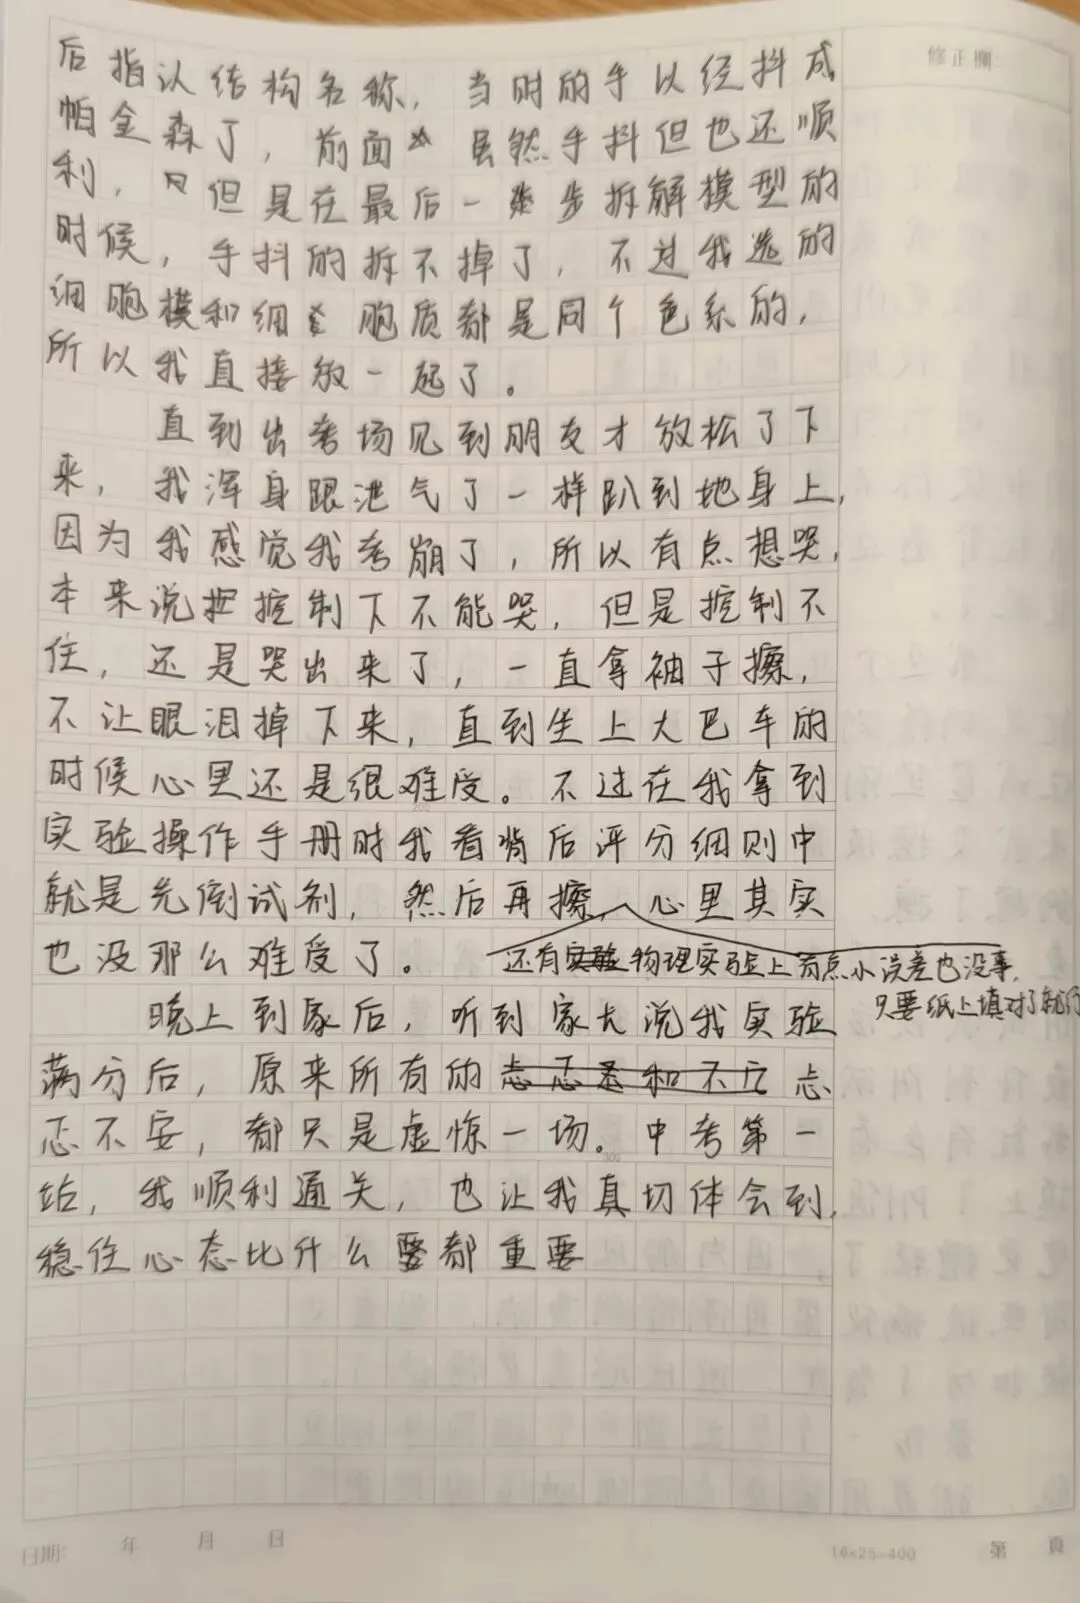 修正欄:
后指认结构名称，当时的手以经抖成
帕金森了，前面虽然手抖但也还顺
利，但是在最后一步拆解模型的
时候，手抖的拆不掉了，不过我选的
细胞模和细胞质都是同个色系的，
所以我直接放一起了。
直到出考场见到朋友才放松了下
来，我浑身跟泄气了一样趴到她身上，
因为我感觉我考崩了，所以有点想哭，
本来说把控制下不能哭，但是控制不
住，还是哭出来了，一直拿袖子擦，
不让眼泪掉下来，直到坐上大巴车的
时候心里还是很难受。不过在我拿到
实验操作手册时我看背后评分细则中
就是先倒试剂，然后再擦，心里其实
也没那么难受了。
还有实验物理实验上有点小误差也没事，
只要纸上填对了就行
晚上到家后，听到家长说我实验
满分后，原来所有的忐忑和不安忐
忑不安，都只是虚惊一场。中考第一
站，我顺利通关，也让我真切体会到，
稳住心态比什么都重要
日期: 年 月 日
16×25=400 第 頁